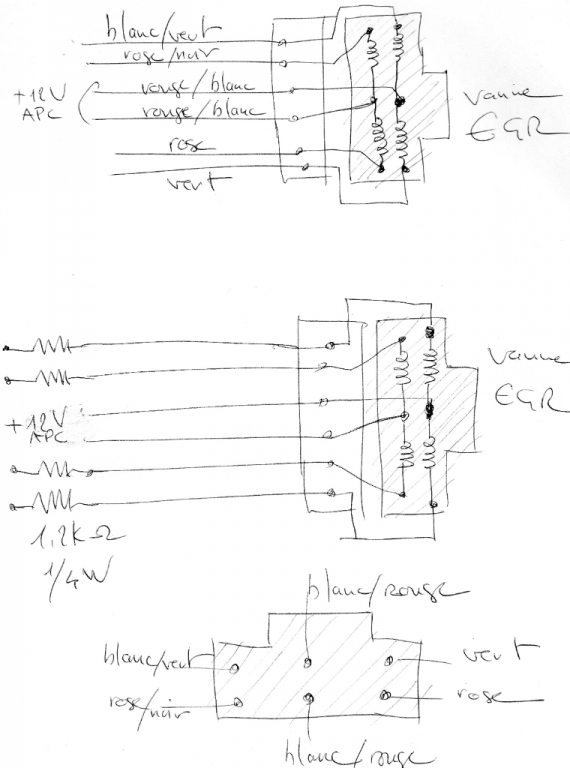 blanc/vert
rose/noir
+12V
APC
rouge/blanc
rouge/blanc
rose
vert
vanne
EGR
+12V
APC
vanne
EGR
1,2K Ω
1/4W
blanc/rouge
blanc/vert
vert
rose/noir
rose
blanc/rouge